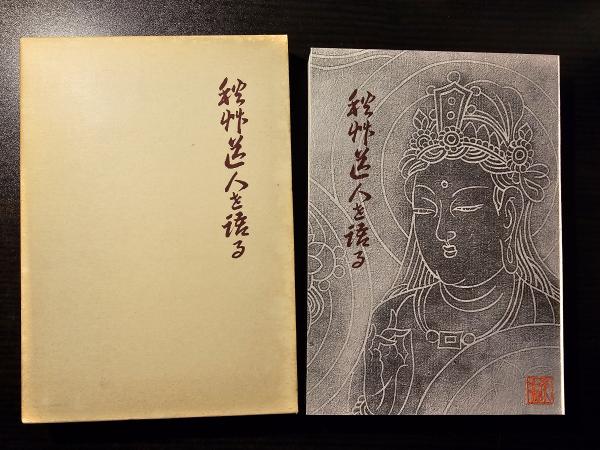 秋艸道人を語る
秋艸道人を語る